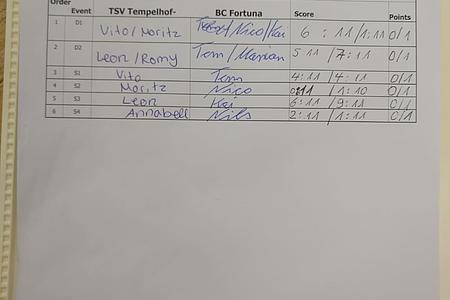 Order Event TSV Tempelhof- BC Fortuna Score Points
1 D1 Vito/Moritz /Nico/Kai 6 : 11 /1:11 0/1
2 D2 Leon/Romy Tom/Marian 5:11 /7:11 0/1
3 S1 Vito Tom 4:11 /4:11 0/1
4 S2 Moritz Nico :11 /1:10 0/1
5 S3 Leon Kai 6:11 /9:11 0/1
6 S4 Annabell Nils 2:11 /1:11 0/1